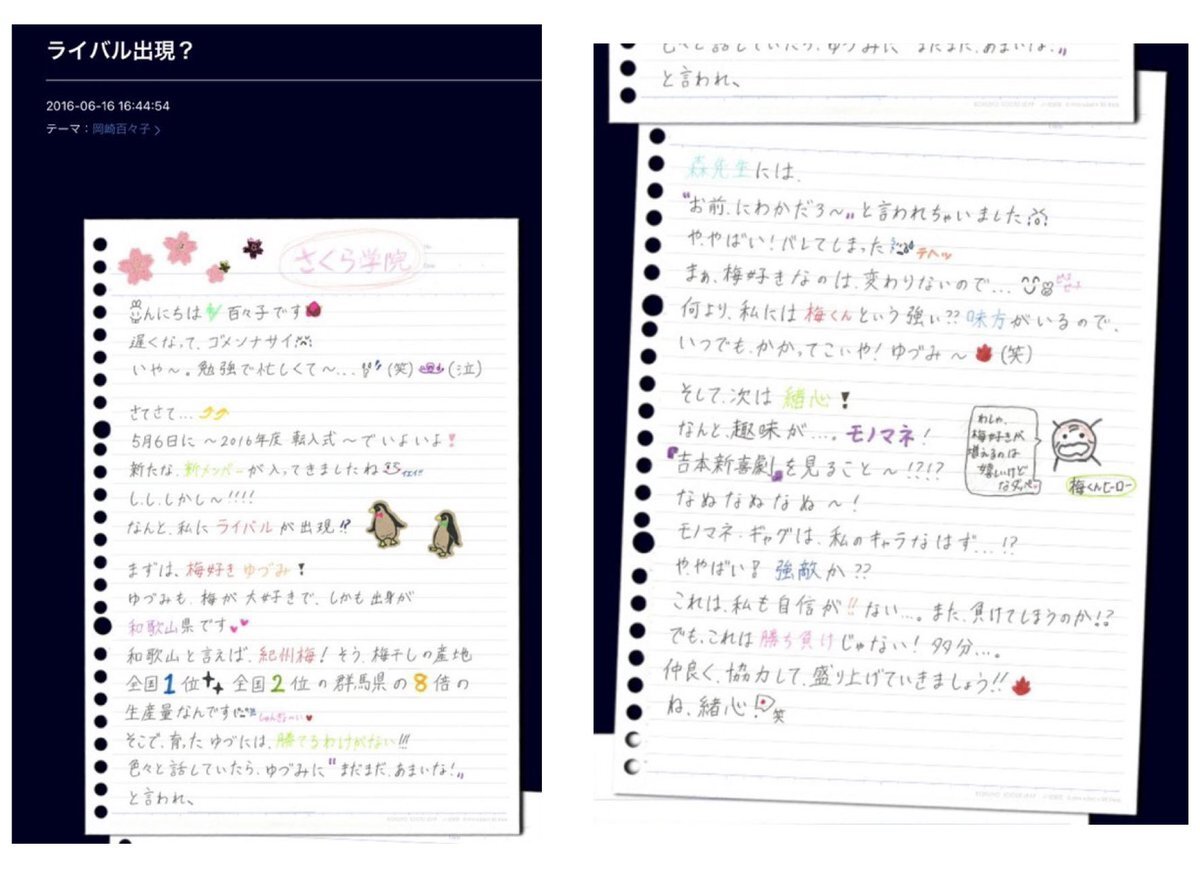 ライバル出現？
2016-06-16 16:44:54
テーマ：岡崎百々子
さくら学院
んにちは 百々子です
遅くなって、ゴメンナサイ
いや〜。勉強で忙しくて〜…(笑)(泣)
さてさて…
5月6日に〜2016年度 転入式〜でいよいよ!
新たな、新メンバーが入ってきましたね イエイ!!
し、し、しかし〜!!!!
なんと、私にライバルが出現!?
まずは、梅好き ゆづみ!
ゆづみも、梅が大好きで、しかも出身が
和歌山県です
和歌山と言えば、紀州梅! そう、梅干しの産地
全国1位 全国2位の群馬県の8倍の
生産量なんです
そこで、育ったゆづには、勝てるわけがない!!!
色々と話していたら、ゆづみに"まだまだ、あまいな!"
と言われ、
色々と話していたら、ゆづみに"まだまだ、あまいな!"
と言われ、
森先生には、
"お前、にわかだろ〜"と言われちゃいました
や、やばい! バレてしまった テヘッ
まぁ、梅好きなのは、変わりないので…
何より、私には梅くんという強い??味方がいるので、
いつでも、かかってこいや! ゆづみ〜(笑)
そして、次は 緒心!
なんと、趣味が…。モノマネ!
『吉本新喜劇』を見ること〜!?!?
なぬなぬなぬ〜!
モノマネ・ギャグは、私のキャラなはず…!?
や、やばい! 強敵か??
これは、私も自信が!!ない…。また、負けてしまうのか!?
でも、これは勝ち負けじゃない! 多分…。
仲良く、協力して、盛り上げていきましょう!!
ね、緒心! 笑
わしゃ、
梅好きが
増えるのは
嬉しいけど
なダッペー
梅くんヒーロー